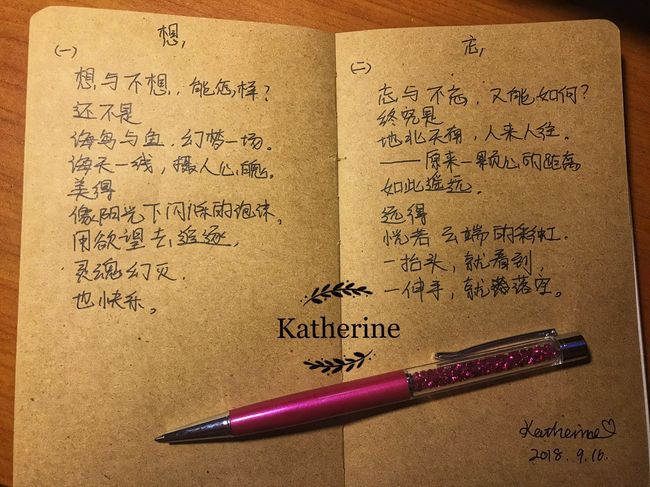 (一)
想,
想与不想,能怎样?
还不是
海鸟与鱼,幻梦一场。
海天一线,摄人心魄。
美得
像阳光下闪烁的泡沫。
用欲望去追逐,
灵魂幻灭.
也快乐。
(二)
忘,
忘与不忘,又能如何?
终究是
地北天南,人来人往。
——原来一颗心的距离
如此遥远。
远得
恍若云端的彩虹.
一抬头,就看到,
一伸手,就落空。
Katherine
Katherine♡
2018.9.16.